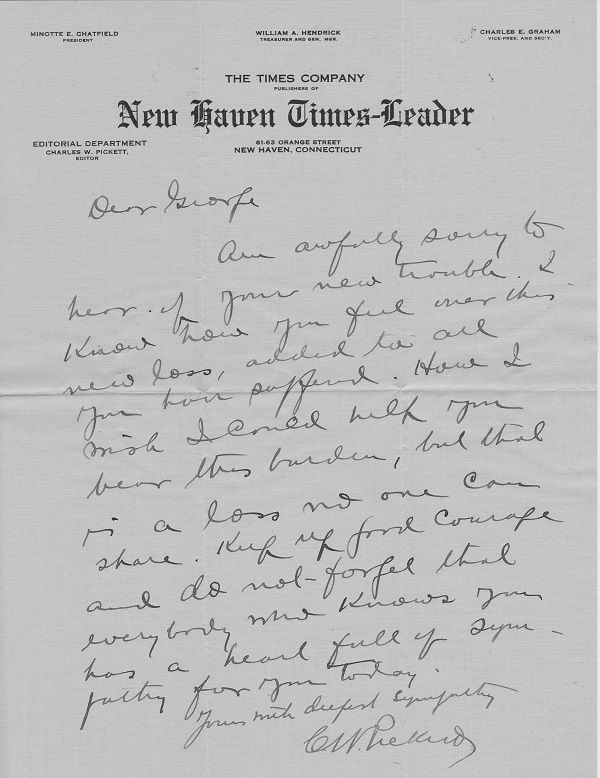 MINOTTE E. CHATFIELD
PRESIDENT
WILLIAM A. HENDRICK
TREASURER AND GEN. MGR.
CHARLES E. GRAHAM
VICE-PRES. AND SEC'Y.
THE TIMES COMPANY
PUBLISHERS OF
New Haven Times-Leader
EDITORIAL DEPARTMENT
CHARLES W. PICKETT,
EDITOR
61-63 ORANGE STREET
NEW HAVEN, CONNECTICUT
Dear George
Am awfully sorry to
hear of your new trouble. I
Know how you feel over this
new loss, added to all
you have suffered. How I
wish I could help you
bear this burden, but that
is a loss no one can
share. Keep up good courage
and do not forget that
everybody who Knows you
has a heart full of sym-
pathy for you today.
Yours with deepest sympathy
C.W. Pickett